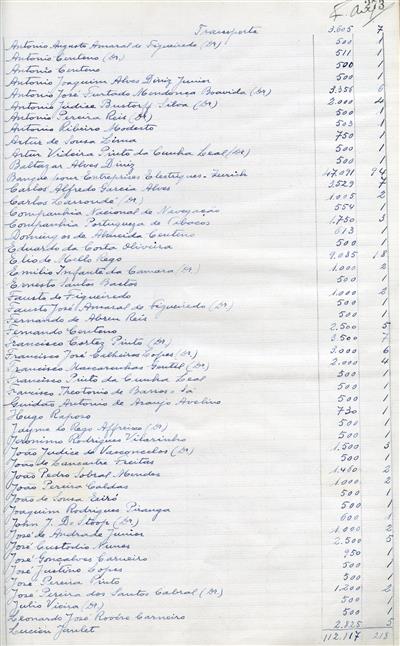 Transporte 3.605 7
Antonio Augusto Amaral de Figueiredo (Dr) 500 1
Antonio Centeno (Dr.) 511 1
Antonio Centeno 500 1
Antonio Joaquim Alves Diniz Junior 500 1
Antonio José Furtado Mendonça Boavida (Dr) 3.356 6
Antonio Judice Bustorff Silva (Dr) 2.000 4
Antonio Pereira Reis (Dr) 500 1
Antonio Ribeiro Moderto 503 1
Artur de Sousa Lima 750 1
Artur Videira Pinto da Cunha Leal (Dr) 500 1
Baltazar Alves Diniz 500 1
Banque pour Entreprises Electriques. Zurich 47.091 94
Carlos Alfredo Garcia Alves 3.529 7
Carlos Larrondé (Dr) 1.005 2
Companhia Nacional de Navegação 554 1
Companhia Portuguesa de Tabacos 1.750 3
Domingos de Almeida Centeno 613 1
Eduardo da Costa Oliveira 500 1
Elio de Mello Rego 9.035 18
Emilio Infante da Camara (Dr) 1.000 2
Ernesto Santos Bastos 500 1
Fausto de Figueiredo 1.000 2
Fausto José Amaral de Figueiredo (Dr) 500 1
Fernando de Abreu Reis 500 1
Fernando Centeno 2.500 5
Francisco Cortez Pinto (Dr.) 3.500 7
Francisco José Calheiros Lopes (Dr.) 3.000 6
Francisco Mascarenhas Gentil (Dr.) 2.000 4
Francisco Pinto da Cunha Leal 500 1
Francisco Theotonio de Barros e Sá 500 1
Guidão Antonio de Araujo Avelino 500 1
Hugo Raposo 730 1
Jayme do Rego Affreixo (Dr) 500 1
Jeronimo Rodrigues Vilarinho 500 1
João Judice de Vasconcelos (Dr) 1.500 3
João de Lancastre Freitas 500 1
João Pedro Sobral Mendes 1.460 2
João Pereira Caldas 1.000 2
João de Sousa Eiró 500 1
Joaquim Rodrigues Piranga 500 1
John J. De Stoop (Dr) 600 1
José de Andrade Junior 1.000 2
José Custodio Nunes 2.500 5
José Gonçalves Carneiro 950 1
José Justino Lopes 500 1
José Pereira Pinto 500 1
José Pereira dos Santos Cabral (Dr) 1.200 2
Julio Vieira (Dr) 500 1
Leonardo José Rovére Carneiro 500 1
Lucien Jaulet 2.825 5
112.117 218